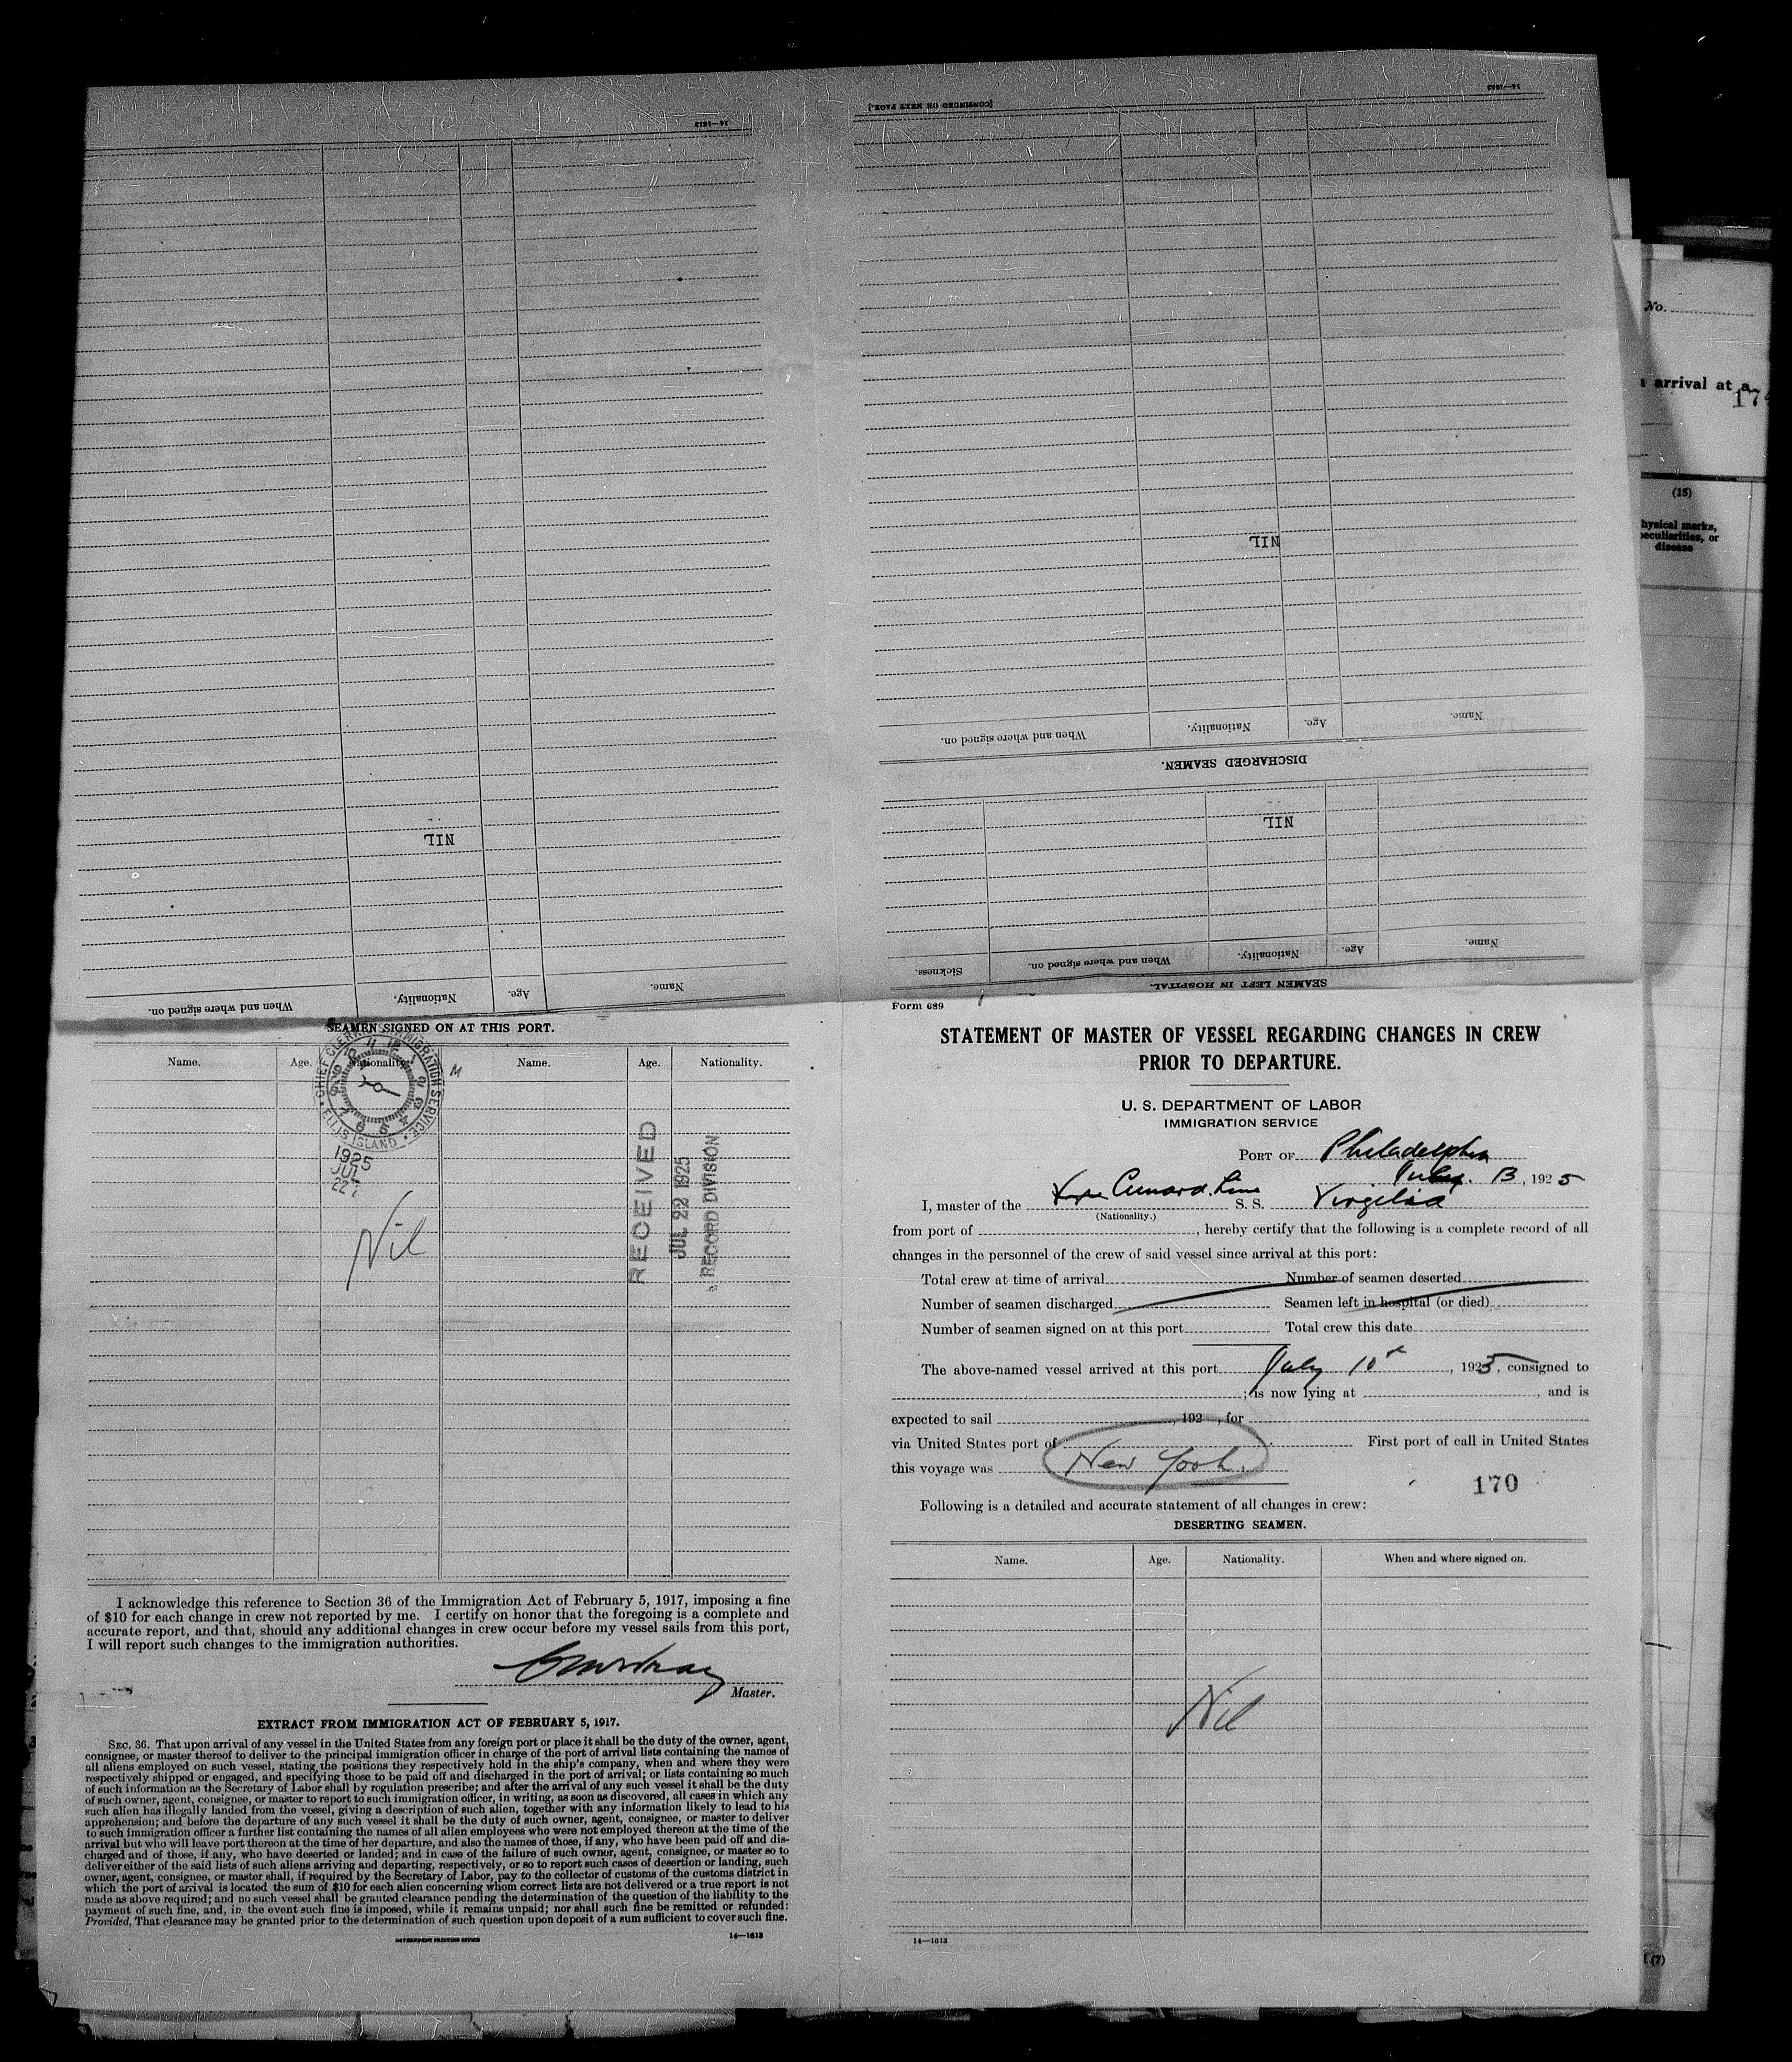 14—1613
[CONTINUED ON NEXT PAGE.]
14—1613
NIL
Name.
Age.
Nationality.
When and where signed on.
NIL
Name.
Age.
Nationality.
When and where signed on.
DISCHARGED SEAMEN.
NIL
Name.
Age.
Nationality.
When and where signed on.
Sickness.
SEAMEN LEFT IN HOSPITAL.
SEAMEN SIGNED ON AT THIS PORT.
Name. Age. Nationality. Name. Age. Nationality.
CHIEF CLERK IMMIGRATION SERVICE
ELLIS ISLAND
1925
JUL
22
M
RECEIVED
JUL 22 1925
RECORD DIVISION
Nil
I acknowledge this reference to Section 36 of the Immigration Act of February 5, 1917, imposing a fine
of $10 for each change in crew not reported by me. I certify on honor that the foregoing is a complete and
accurate report, and that, should any additional changes in crew occur before my vessel sails from this port,
I will report such changes to the immigration authorities.
Master.
EXTRACT FROM IMMIGRATION ACT OF FEBRUARY 5, 1917.
SEC. 36. That upon arrival of any vessel in the United States from any foreign port or place it shall be the duty of the owner, agent,
consignee, or master thereof to deliver to the principal immigration officer in charge of the port of arrival lists containing the names of
all aliens employed on such vessel, stating the positions they respectively hold in the ship's company, when and where they were
respectively shipped or engaged, and specifying those to be paid off and discharged in the port of arrival; or lists containing so much
of such information as the Secretary of Labor shall by regulation prescribe; and after the arrival of any such vessel it shall be the duty
of such owner, agent, consignee, or master to report to such immigration officer, in writing, as soon as discovered, all cases in which any
such alien has illegally landed from the vessel, giving a description of such alien, together with any information likely to lead to his
apprehension; and before the departure of any such vessel it shall be the duty of such owner, agent, consignee, or master to deliver
to such immigration officer a further list containing the names of all alien employees who were not employed thereon at the time of the
arrival but who will leave port thereon at the time of her departure, and also the names of those, if any, who have been paid off and dis-
charged and of those, if any, who have deserted or landed; and in case of the failure of such owner, agent, consignee, or master so to
deliver either of the said lists of such aliens arriving and departing, respectively, or so to report such cases of desertion or landing, such
owner, agent, consignee, or master shall, if required by the Secretary of Labor, pay to the collector of customs of the customs district in
which the port of arrival is located the sum of $10 for each alien concerning whom correct lists are not delivered or a true report is not
made as above required; and no such vessel shall be granted clearance pending the determination of the question of the liability to the
payment of such fine, and, in the event such fine is imposed, while it remains unpaid; nor shall such fine be remitted or refunded:
Provided, That clearance may be granted prior to the determination of such question upon deposit of a sum sufficient to cover such fine.
GOVERNMENT PRINTING OFFICE 14—1613
Form 689
STATEMENT OF MASTER OF VESSEL REGARDING CHANGES IN CREW
PRIOR TO DEPARTURE.
U. S. DEPARTMENT OF LABOR
IMMIGRATION SERVICE
PORT OF Philadelphia
July. 13, 1925
I, master of the Cunard Line S. S. Virgilia
(Nationality.)
from port of , hereby certify that the following is a complete record of all
changes in the personnel of the crew of said vessel since arrival at this port:
Total crew at time of arrival Number of seamen deserted
Number of seamen discharged Seamen left in hospital (or died)
Number of seamen signed on at this port Total crew this date
The above-named vessel arrived at this port July 10th, 1925, consigned to
; is now lying at , and is
expected to sail , 192 , for
via United States port of First port of call in United States
this voyage was New York.
170
Following is a detailed and accurate statement of all changes in crew:
DESERTING SEAMEN.
Name. Age. Nationality. When and where signed on.
Nil
14—1613
No.
arrival at a
174
(15)
hysical marks,
peculiarities, or
disease
(7)